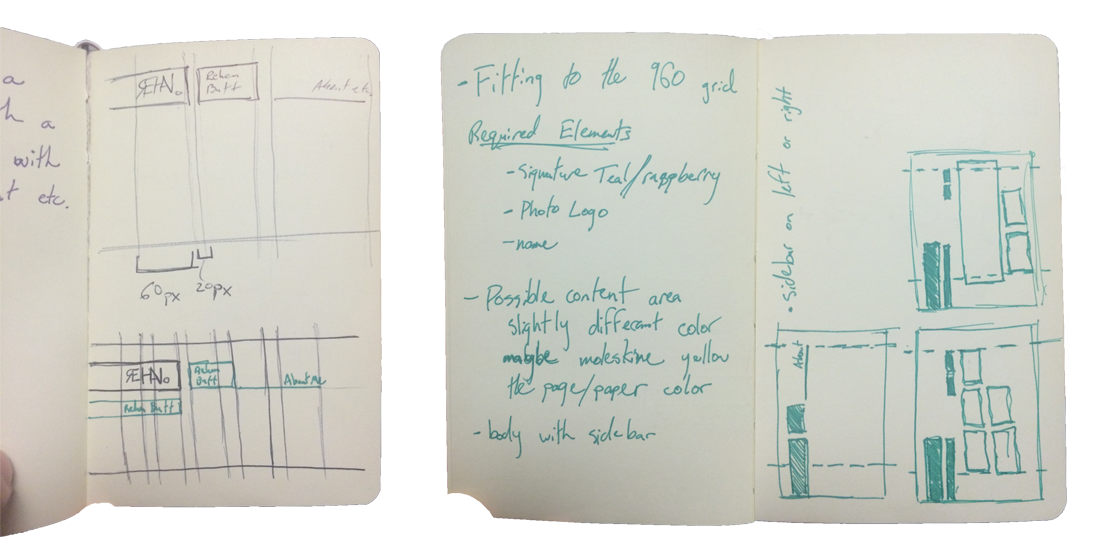 a
h a
with
t etc.
REHN.
Rehan
Butt
About etc.
60px 20px
REHN.
Rehan
Butt
About Me
Rehan Butt
- Fitting to the 960 grid
Required Elements
- Signature Teal/raspberry
- Photo Logo
- name
- Possible content area
slightly different color
maybe moleskine yellow
the page/paper color
- body with sidebar
• sidebar on left or right
About